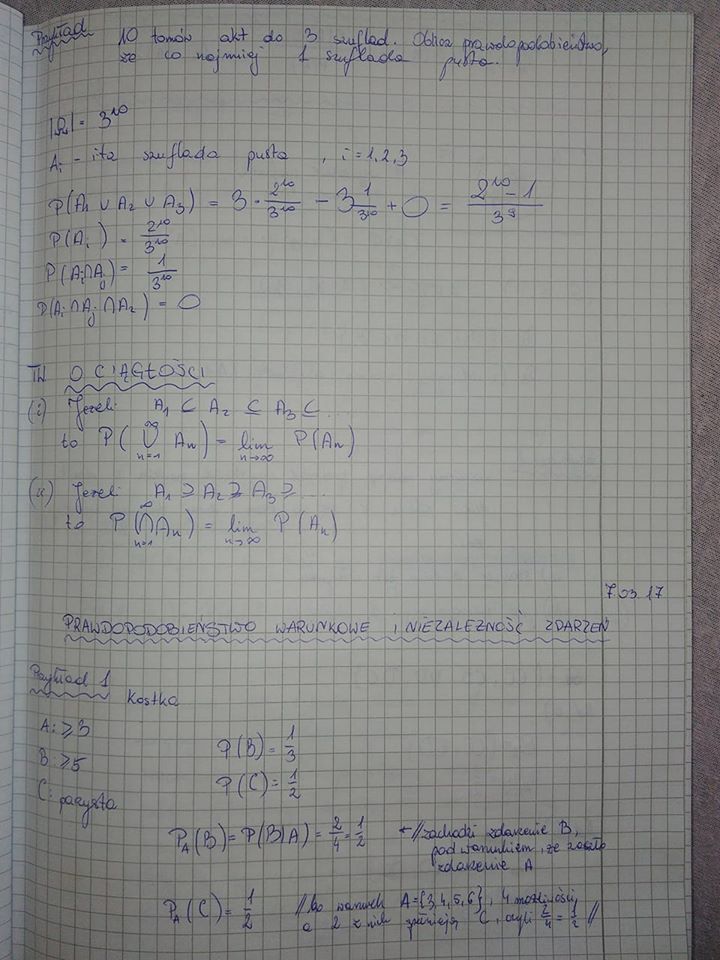 Przykład 10 tomów akt do 3 szuflad. Oblicz prawdopodobieństwo,
że co najmniej 1 szuflada pusta.
|Ω| = 3^10
Ai - ita szuflada pusta , i = 1,2,3
P(A1 ∪ A2 ∪ A3) = 3 · 2^10/3^10 − 3 1/3^10 + 0 = (2^10 − 1)/3^9
P(Ai) = 2^10/3^10
P(Ai∩Aj) = 1/3^10
P(Ai ∩ Aj ∩ Az) = 0
TW O CIĄGŁOŚCI
(i) Jeżeli A1 ⊆ A2 ⊆ A3 ⊆ ...
to P(⋃_{n=1}^{∞} An) = lim_{n→∞} P(An)
(ii) Jeżeli A1 ⊇ A2 ⊇ A3 ⊇ ...
to P(⋂_{n=1}^{∞} An) = lim_{n→∞} P(An)
7.03.17
PRAWDOPODOBIEŃSTWO WARUNKOWE I NIEZALEŻNOŚĆ ZDARZEŃ
Przykład 1 Kostka
A: ≥3
B: ≥5
C: parzysta
P(B) = 1/3
P(C) = 1/2
P_A(B) = P(B|A) = 2/4 = 1/2 ← // zachodzi zdarzenie B,
pod warunkiem, że zaszło
zdarzenie A
P_A(C) = 1/2 // bo warunek A={3,4,5,6}, 4 możliwości
a 2 z nich spełniają C, czyli 2/4 = 1/2 //